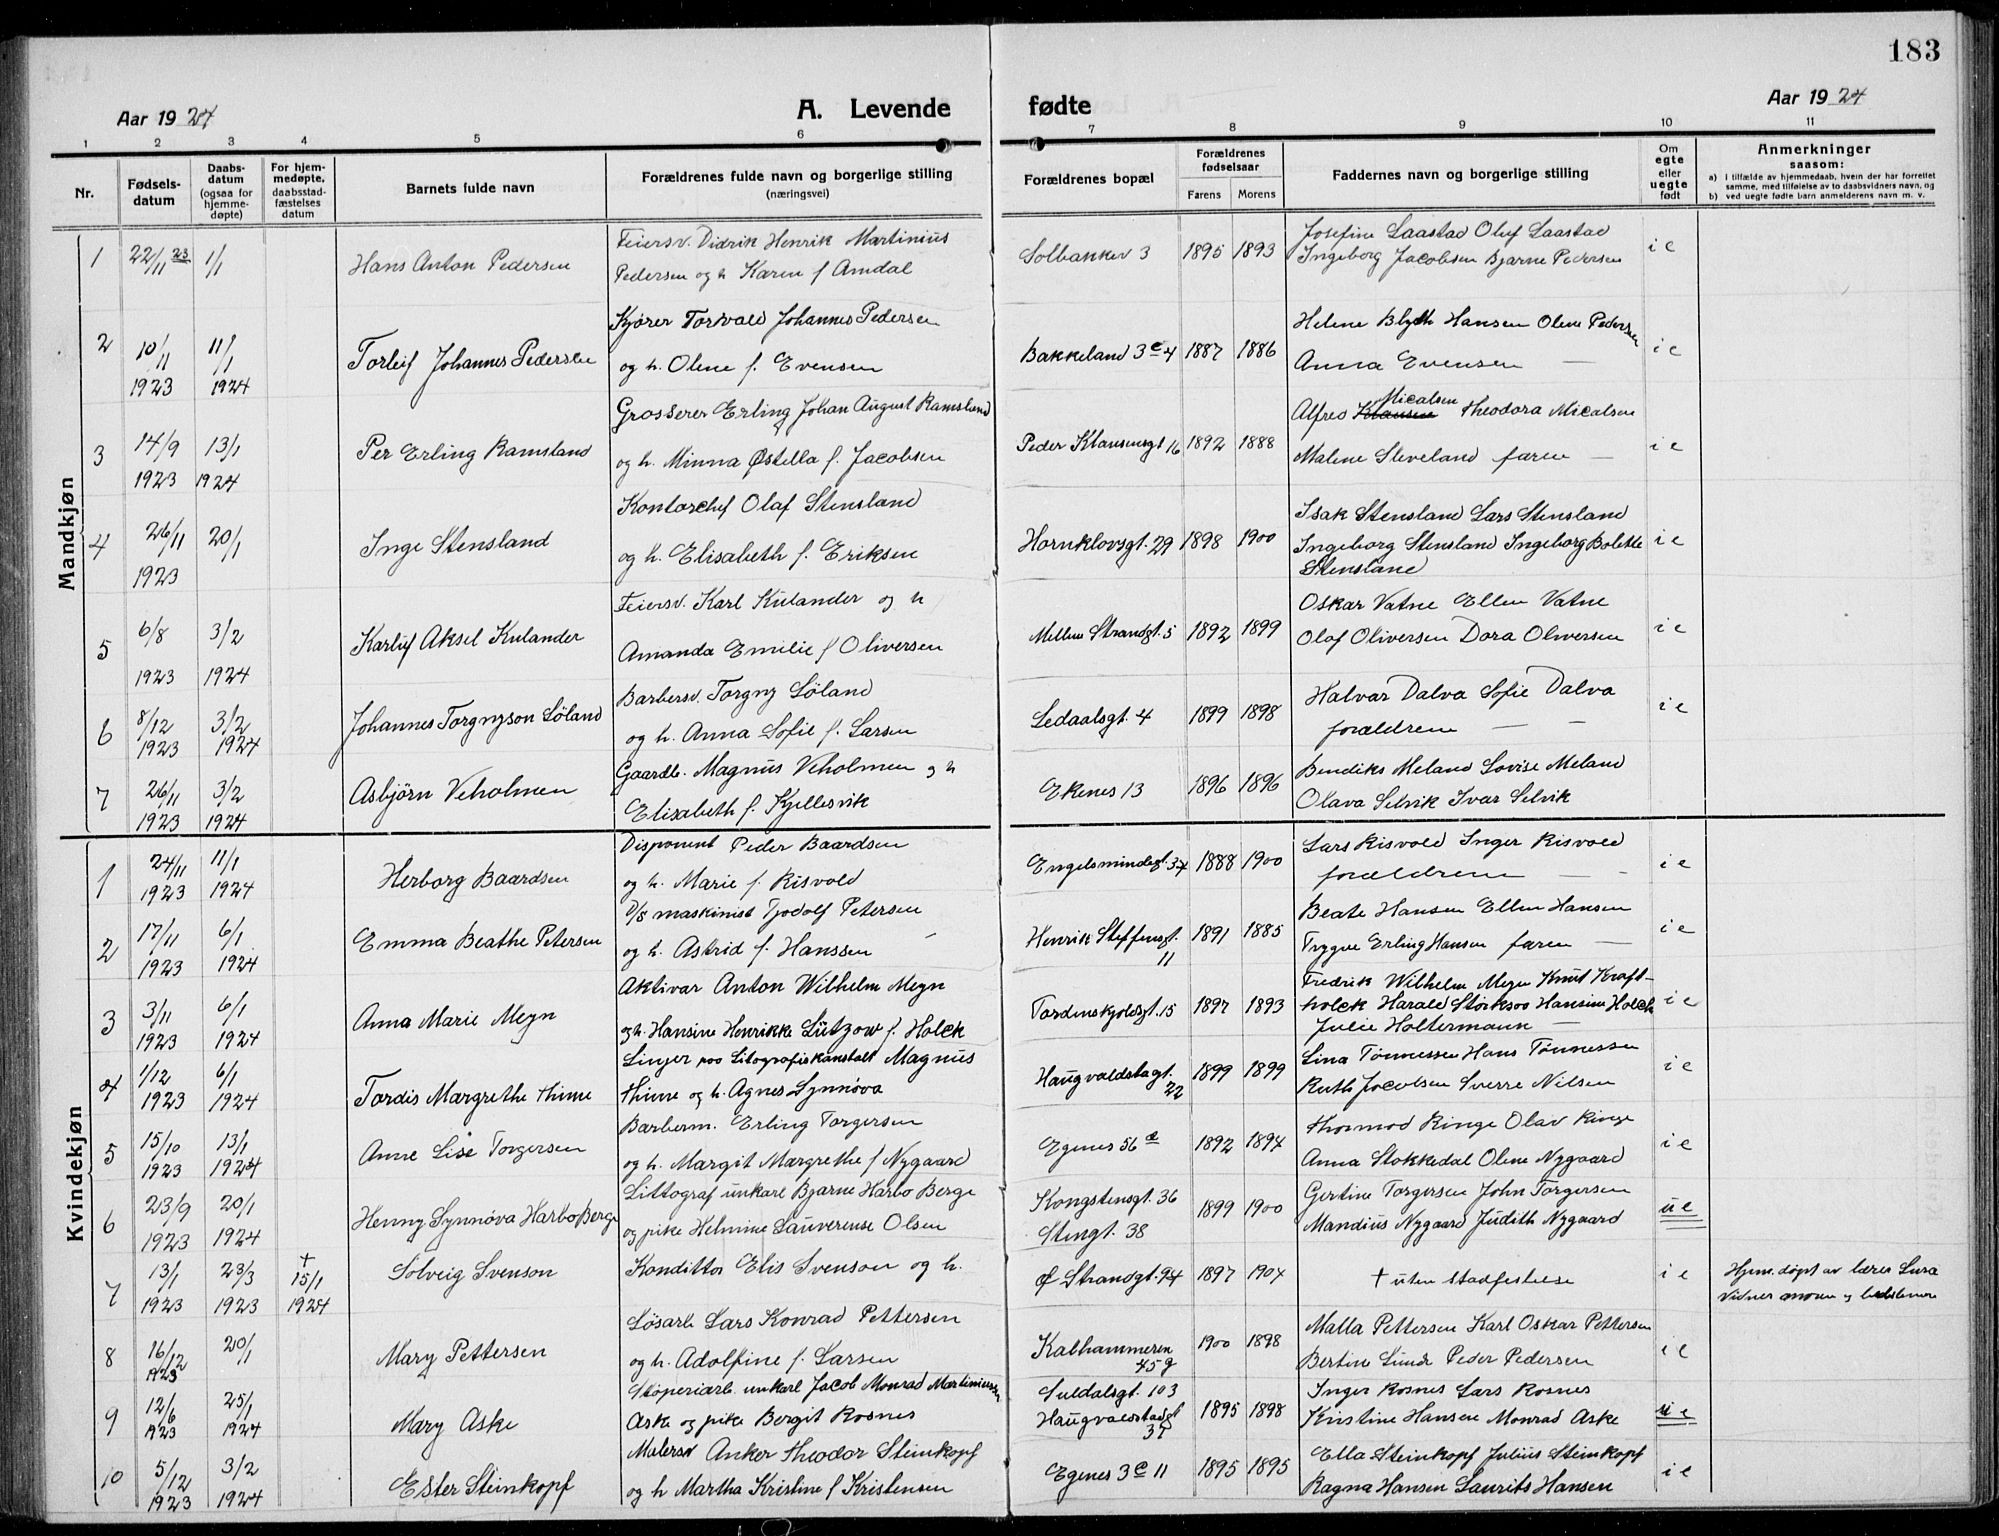 183
Aar 1924
A. Levende fødte
Aar 1924
1 2 3 4 5 6 7 8 9 10 11
Nr.
Fødsels-
datum
Daabs-
datum
(ogsaa for
hjemme-
døpte)
For hjem-
medøpte,
daabsstad-
fæstelses
datum
Barnets fulde navn
Forældrenes fulde navn og borgerlige stilling
(næringsvei)
Forældrenes bopæl
Forældrenes
fødselsaar
Farens Morens
Faddernes navn og borgerlige stilling
Om
egte
eller
uegte
født
Anmerkninger
saasom:
a) i tilfælde av hjemmedaab, hvem der har forrettet
samme, med tilføielse av to daabsvidners navn, og
b) ved uegte fødte barn anmelderens navn m. v.
Mandkjøn
1 22/11 23 1/1 Hans Anton Pedersen
Feiersv. Didrik Henrik Martinius
Pedersen og h Karen f Amdal
Solbakkev 3 1895 1893
Josefine Laastad Oluf Laastad
Ingeborg Jacobsen Bjarne Pedersen
i e
2 10/11 1923 11/1 1924 Torleif Johannes Pedersen
Kjører Torvald Johannes Pedersen
og h. Olene f. Evensen
Bakkeland 3c 4 1887 1886
Helene Blyth Hansen Olene Pedersen
Anna Evensen —
i e
3 14/9 1923 13/1 1924 Per Erling Ramsland
Grosserer Erling Johan August Ramsland
og h. Minna Østella f. Jacobsen
Peder Klausensgt 16 1892 1888
Alfred Klausen Micalsen Theodora Micalsen
Malene Sleveland faren —
i e
4 26/11 1923 20/1 Inge Stensland
Kontorchef Olaf Stensland
og h. Elisabeth f. Eriksen
Hornklovsgt. 29 1898 1900
Isak Stensland Lars Stensland
Ingeborg Stensland Ingeborg Bolette
Stensland
i e
5 6/8 1923 3/2 1924 Karleif Aksel Kulander
Feiersv. Karl Kulander og h
Amanda Emilie f Oliversen
Mellem Strandgt. 5 1892 1899
Oskar Vatne Ellen Vatne
Olaf Oliversen Dora Oliversen
i e
6 8/12 1923 3/2 1924 Johannes Torgnyson Søland
Barbersv. Torgny Søland
og h. Anna Sofie f. Larsen
Ledaalsgt. 4 1899 1898
Halvar Dalva Sofie Dalva
forældrene — —
i e
7 26/11 1923 3/2 1924 Asbjørn Veholmen
Gaardb. Magnus Veholmen og h
Elisabeth f. Kjellesvik
Ekenes 13 1896 1896
Bendiks Meland Lovise Meland
Olava Selvik Ivar Selvik
Kvindekjøn
1 24/11 1923 11/1 1924 Herborg Baardsen
Disponent Peder Baardsen
og h. Marie f. Risvold
Engelsmindegt. 34 1888 1900
Lars Risvold Inger Risvold
forældrene — —
i e
2 17/11 1923 6/1 1924 Emma Beathe Petersen
D/S maskinist Tjodolf Petersen
og h. Astrid f. Hanssen
Henrik Steffensgt.
11 1891 1885
Beate Hansen Ellen Hansen
Trygve Erling Hansen faren —
i e
3 3/11 1923 6/1 1924 Anna Marie Meyn
Aktivar Anton Wilhelm Meyn
og h. Hansine Henrikke Lützow f. Holck
Tordenskjoldsgt. 15 1897 1893
Fredrik Wilhelm Meyn Knut Kraft-
holck Harald Storksoo Hansine Holck
Julie Holtermann —
i e
4 1/12 1923 6/1 1924 Tordis Margrethe Thime
Linjer paa Litografiskanstalt Magnus
Thime og h. Agnes Synnøva
Haugvaldstagt.
22 1899 1899
Lina Tønnessen Hans Tønnessen
Ruth Jacobsen Sverre Nilsen
i e
5 15/10 1923 13/1 1924 Anne Lise Torgersen
Barberm. Erling Torgersen
og h. Margit Margrethe f Nygaard
Egenes 56 a 1892 1894
Thormod Ringe Olav Ringe
Anna Stokkedal Olene Nygaard
i e
6 23/9 1923 20/1 1924 Henny Synnøva Harbo Berge
Littograf unkarl Bjarne Harbo Berge
og pike Helmine Lauverense Olsen
Kongstensgt. 36
Stengt. 38 1899 1900
Gertine Torgersen John Torgersen
Mandius Nygaard Judith Nygaard
u e
7 13/1 1923 23/3 1923 + 15/1 1924 Solveig Svenson
Konditor Elis Svenson og h.
Ø Strandgt. 94 1897 1904
+ uten stadfestelse
i e
Hjem. døpt av lærer Lura
Vidner moren og
8 16/12 1923 20/1 Mary Pettersen
Løsarb Lars Konrad Pettersen
og h. Adolfine f. Larsen
Kalhammeren
45 g 1900 1898
Malla Pettersen Karl Oskar Pettersen
Bertine Lunde Peder Pedersen
i e
9 12/6 1923 25/1 1924 Mary Aske
Støperiarb. unkarl Jacob Monrad Martiniussen
Aske og pike Bergit Rosnes
Suldalsgt. 103
Haugvaldstadgt
37 1895 1898
Inger Rosnes Lars Rosnes
Kristine Hansen Monrad Aske
u e
10 5/12 1923 3/2 1924 Ester Steinkopf
Malersv Anker Theodor Steinkopf
og h Martha Kristine f Kristensen
Egenes 3c 11 1895 1895
Ella Steinkopf Julius Steinkopf
Ragna Hansen Laurits Hansen
i e